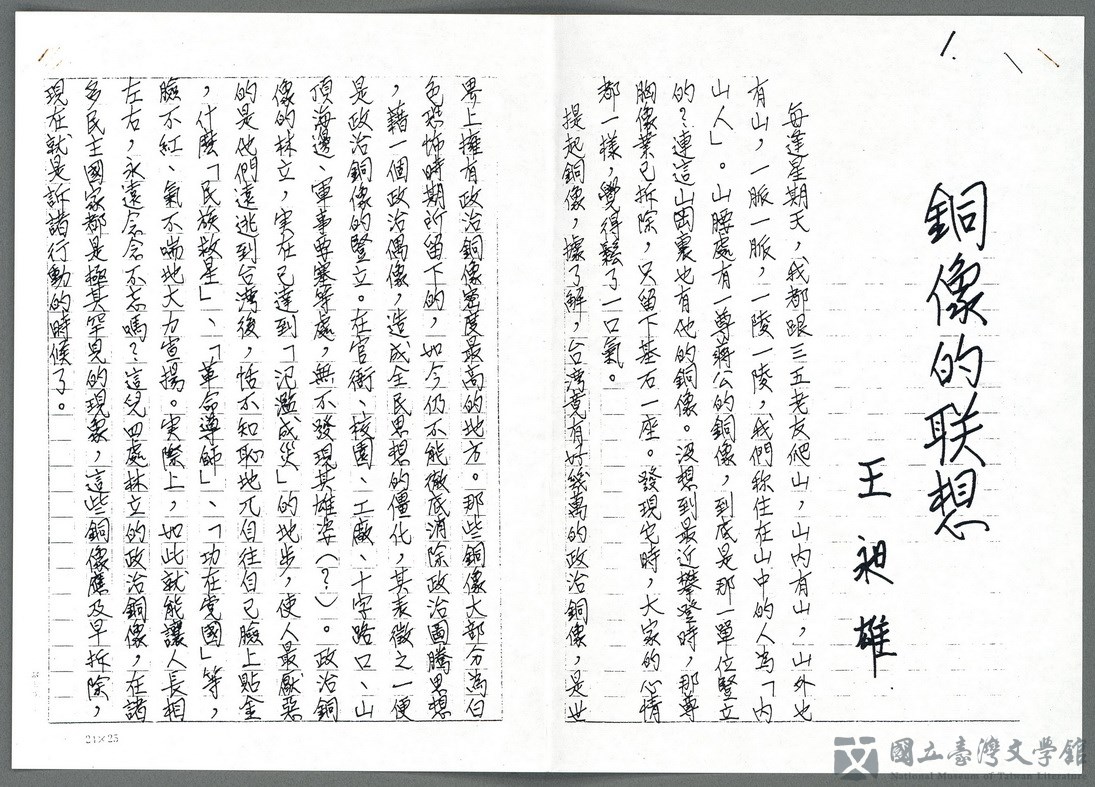 銅像的联想
王昶雄
每逢星期天，我都跟三五老友爬山，山內有山，山外也
有山，一脈一脈，一陵一陵，我們称住在山中的人為「內
山人」。山腰處有一尊蔣公的銅像，到底是那一單位豎立
的？連這山园裏也有他的銅像。沒想到最近攀登時，那尊
胸像業已拆除，只留下基石一座。發現它時，大家的心情
都一樣，覺得鬆了一口氣。
提起銅像，據了解，台灣竟有好幾萬的政治銅像，是世
界上擁有政治銅像密度最高的地方。那些銅像大部分為白
色恐怖時期所留下的，如今仍不能徹底消除政治圖騰思想
，藉一個政治偶像，造成全民思想的僵化，其表徵之一便
是政治銅像的豎立。在官衙、校園、工廠、十字路口、山
頂海邊、軍事要塞等處，無不發現其雄姿（？）。政治銅
像的林立，実在已達到「氾濫成災」的地步，使人最厭惡
的是他們遠逃到台灣後，恬不知恥地兀自往自己臉上貼金
，什麼「民族救星」、「革命導師」、「功在党國」等，
臉不紅、氣不喘地大力宣揚。実際上，如此就能讓人長相
左右，永遠念念不忘嗎？這兒四處林立的政治銅像，在諸
多民主國家都是極其罕見的現象，這些銅像應及早拆除，
現在就是訴諸行動的時候了。
1.
24×25
國立臺灣文學館
National Museum of Taiwan Literature